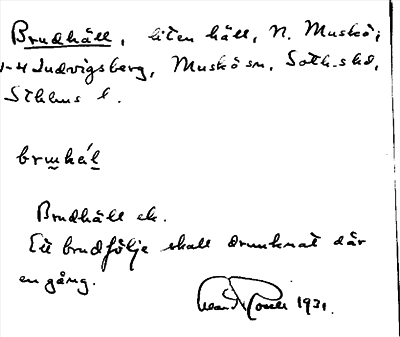 Brudhäll, liten häll, N. Muskö,
Ludvigsberg, Muskö sn, Soth. shd,
Sthlms l.
brʉhǽl
Brudhäll ek.
Ett brudfölje skall drunknat där
en gång.
1931.